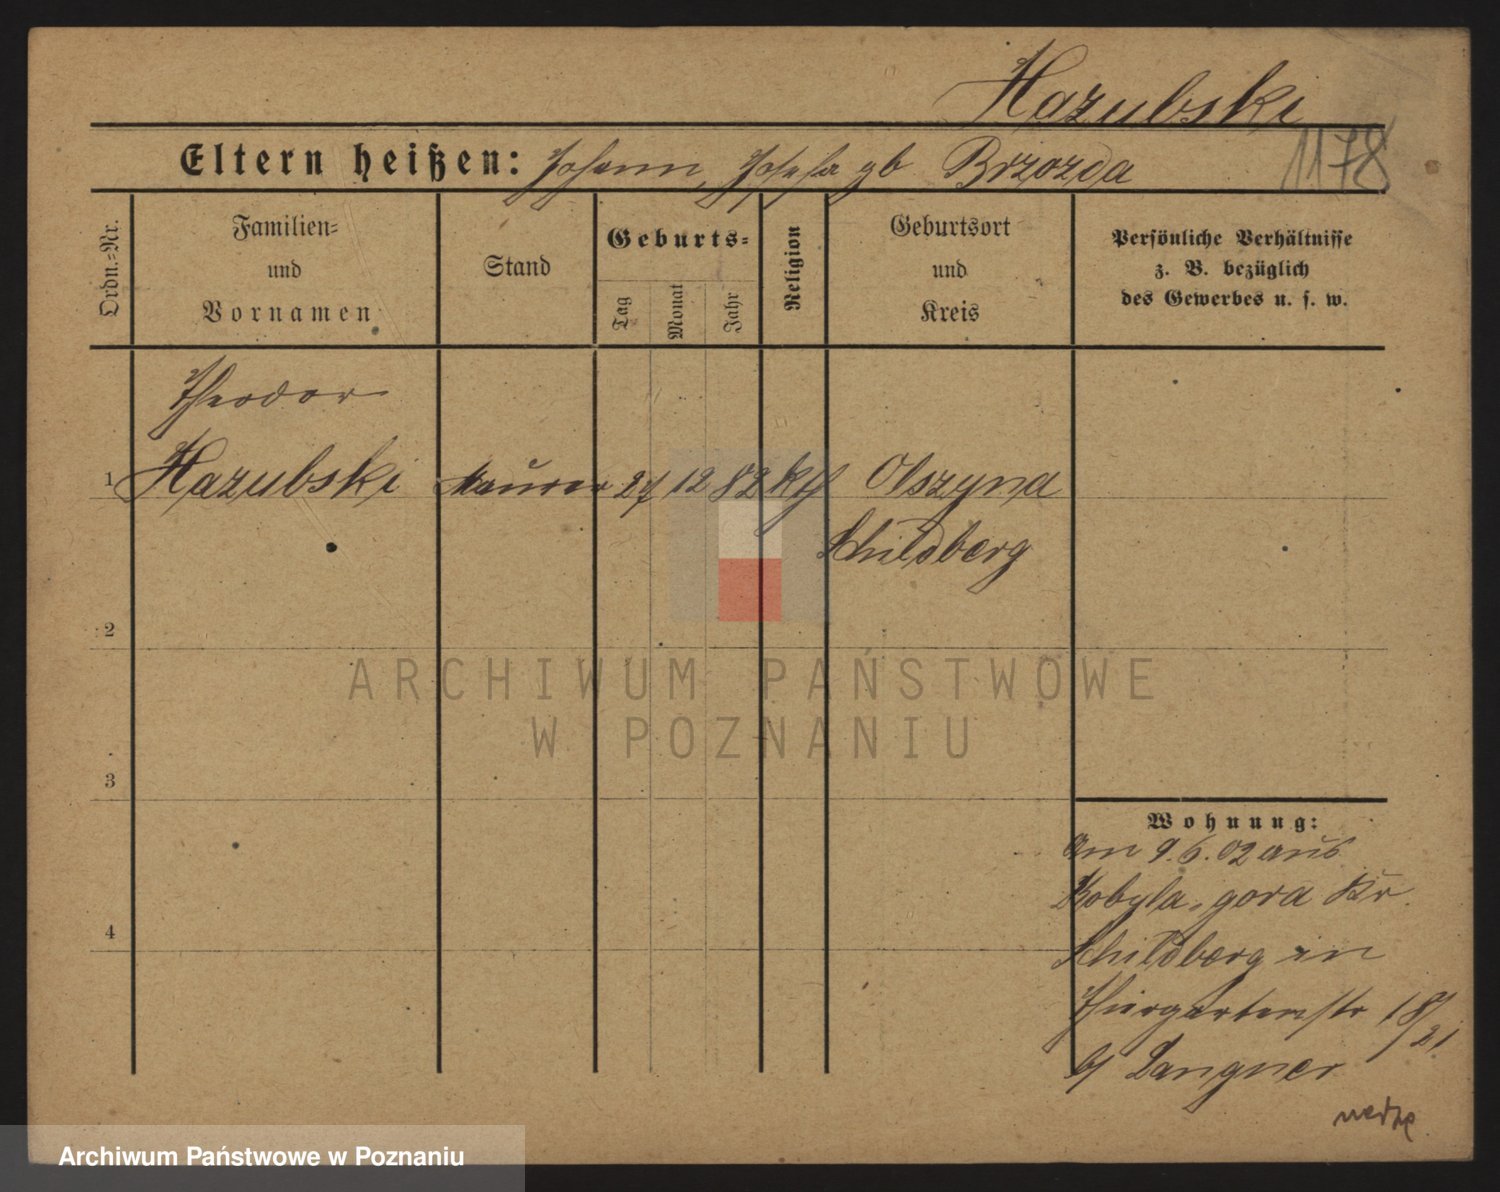 Hazubski
Eltern heißen: Johann, Josefa gb Brzozda
1178
Ordn.-Nr.
Familien-
und
Vornamen
Stand
Geburts-
Tag
Monat
Jahr
Religion
Geburtsort
und
Kreis
Persönliche Verhältnisse
z. B. bezüglich
des Gewerbes u. s. w.
Theodor
1 Hazubski Maurer 27 12 82 kth Olszyna
Schildberg
2
3
4
Wohnung:
Am 9.6.02 aus
Kobyla-gora Kr.
Schildberg in
Thiergartenstr 18/21
bj Langner
ARCHIWUM PAŃSTWOWE
W POZNANIU
Archiwum Państwowe w Poznaniu